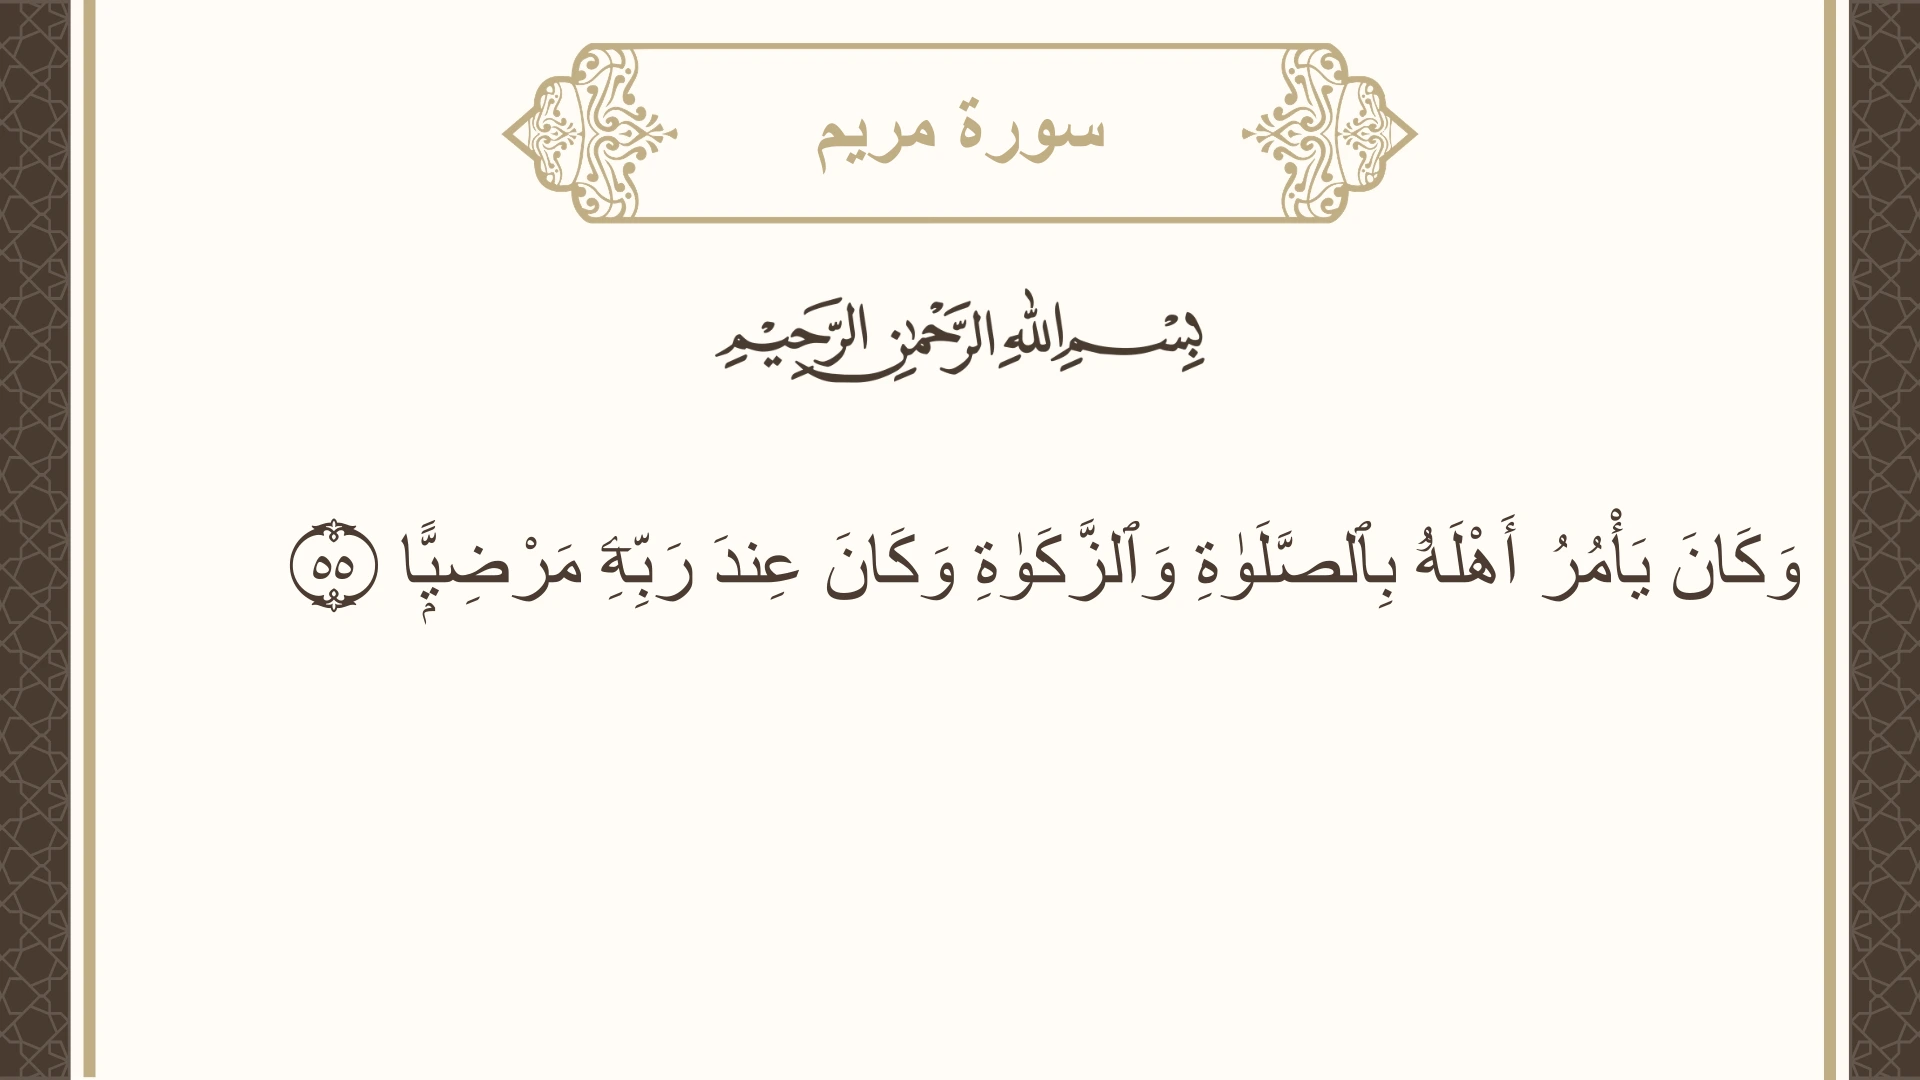 سورة مريم
بِسْمِ اللهِ الرَّحْمٰنِ الرَّحِيْمِ
وَكَانَ يَأْمُرُ أَهْلَهُۥ بِٱلصَّلَوٰةِ وَٱلزَّكَوٰةِ وَكَانَ عِندَ رَبِّهِۦ مَرْضِيًّۭا ۝٥٥